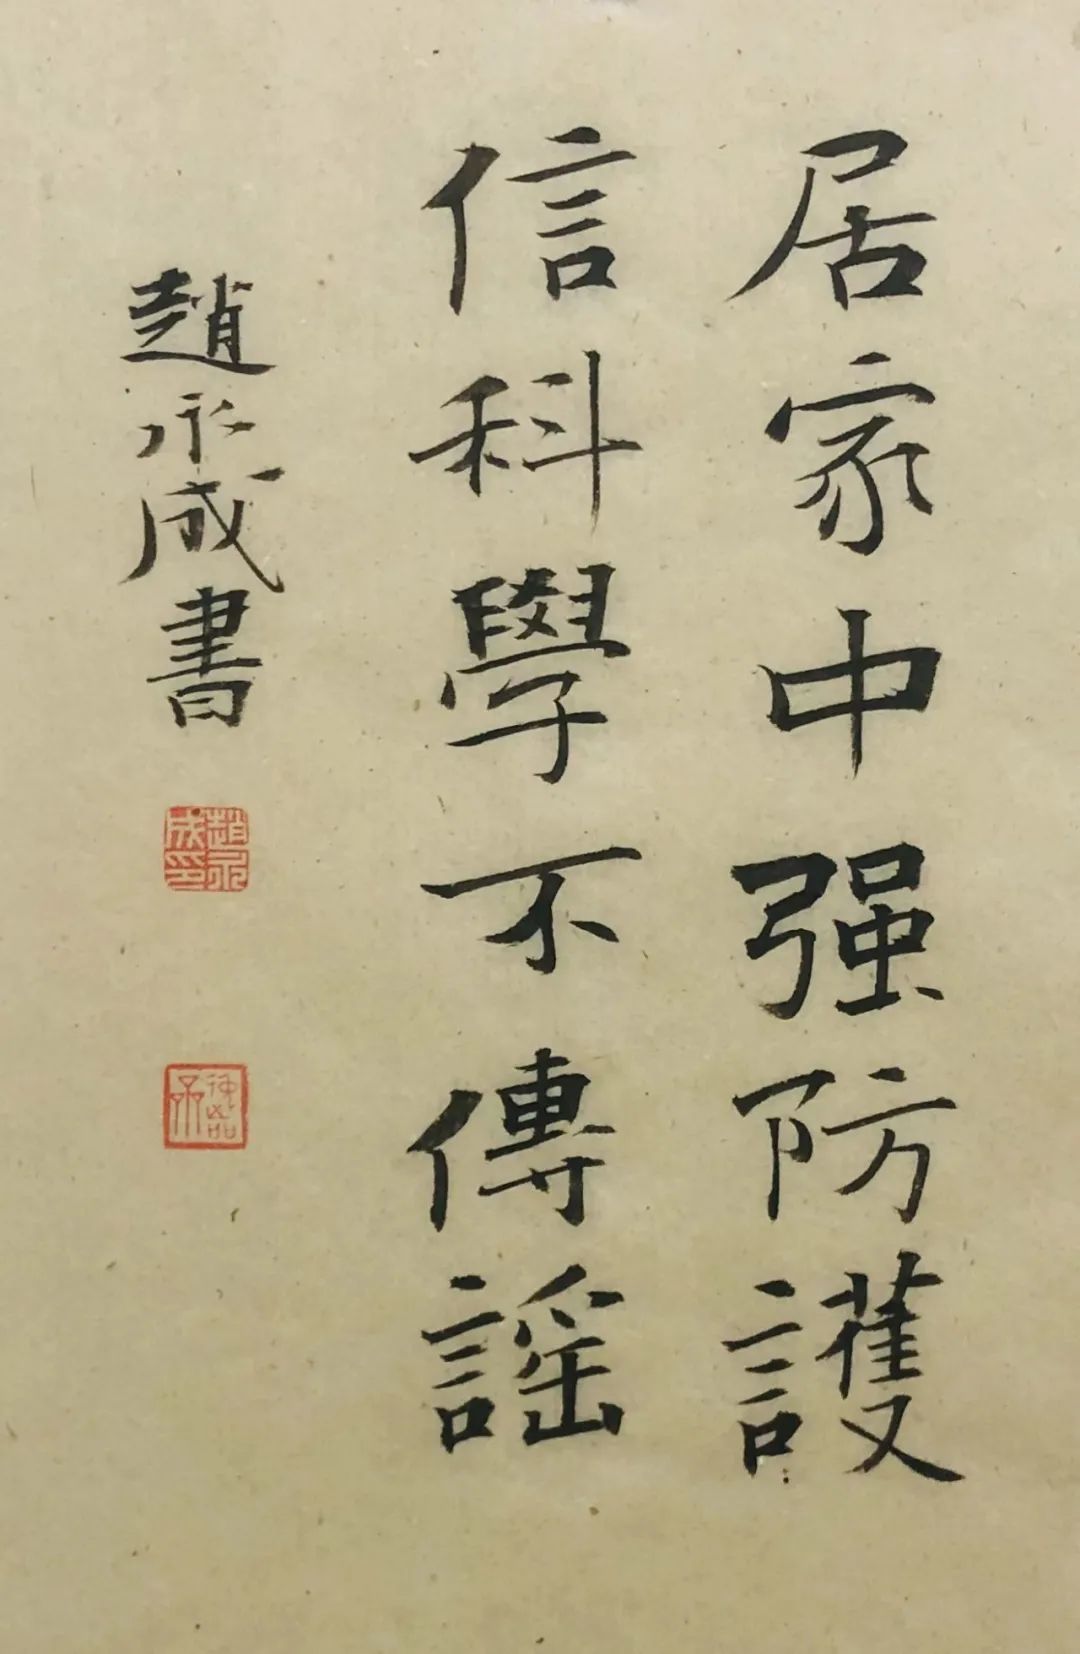 居家中强防護
信科學不傳謡
趙永成書
趙永成印